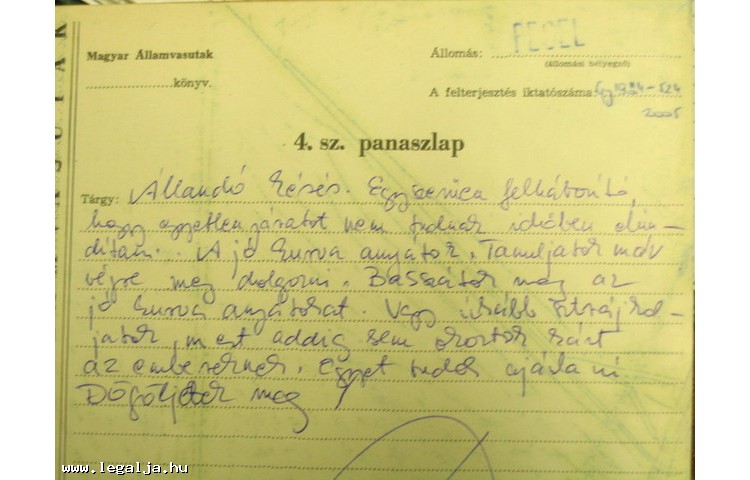 Magyar Államvasutak
könyv.
Állomás: PECEL
(állomási bélyegző)
A felterjesztés iktatószáma:
2005
4. sz. panaszlap
Tárgy: Állandó késés. Egyszerűen felháborító,
hogy egyetlen járatot nem tudnak időben elin-
dítani. A jó kurva anyátok. Tanuljatok már
végre meg dolgozni. Basszátok meg az
jó kurva anyátokat. Vagy inkább sztrájkol-
jatok, mert addig sem okoztok kárt
az embereknek. Egyet tudok ajánlani
Dögöljetek meg!
www.legalja.hu